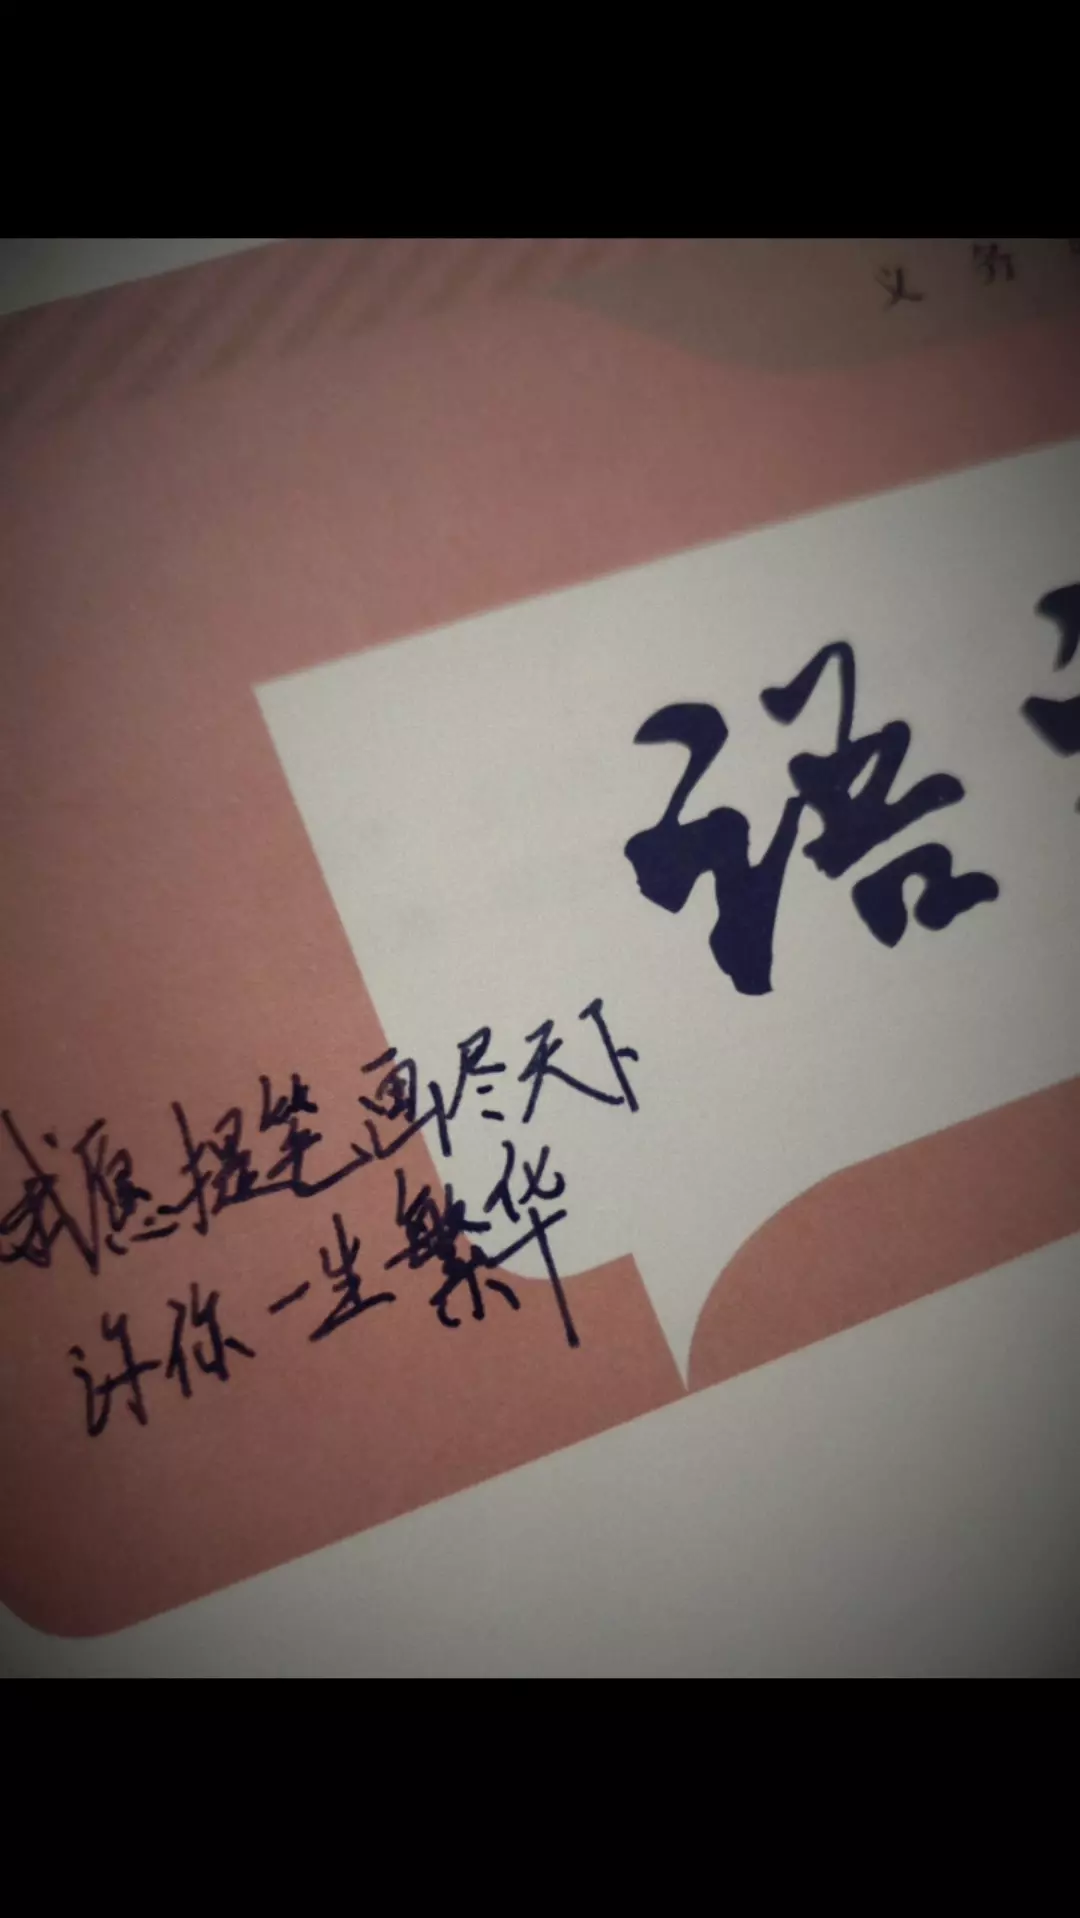 义务
语
我愿提笔画尽天下
许你一生繁华